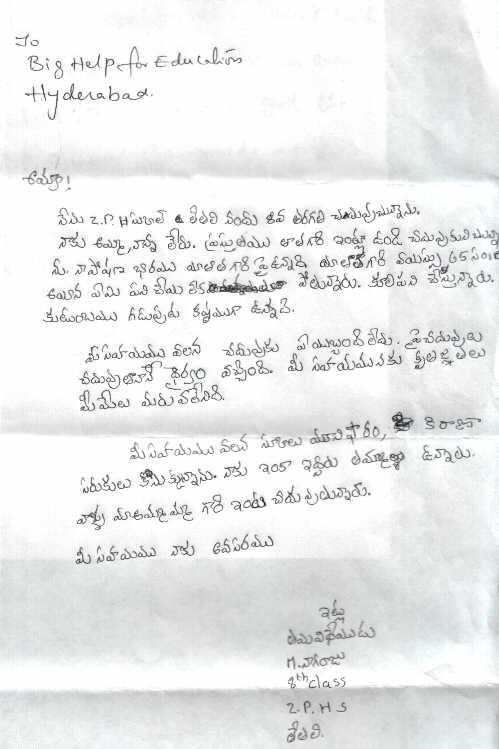 To
Big Help for Education
Hyderabad.
అమ్మా!
నేను Z.P.H స్కూల్ తేతలి నందు 8వ తరగతి చదువుచున్నాను.
నాకు అమ్మా, నాన్న లేరు. ప్రస్తుతము తాతగారి ఇంట్లో ఉండి చదువుకుంటున్న
ను. నా పోషణ భారము మా తాతగారి పై ఉన్నది. మా తాతగారి వయస్సు 65 సం॥
ఆయన ఏమి పని చేయ లేక పోతున్నారు. కూలిపని చేస్తున్నారు.
కుటుంబము గడుపుట కష్టముగా ఉన్నది.
మీ సహాయము వలన చదువుకు ఏ యిబ్బంది లేదు. పై చదువులు
చదువుతాననే ధైర్యం వచ్చింది. మీ సహాయమునకు కృతజ్ఞతలు
మీ మేలు మరువలేనిది.
మీ సహాయము వలన స్కూలు యూనిఫారం, కిరాణా
సరుకులు కొనుక్కున్నాను. నాకు ఇంకా ఇద్దరు తమ్ముళ్లు ఉన్నారు.
వాళ్ళు మా అమ్మమ్మ గారి ఇంటి చదువుతున్నారు.
మీ సహాయము నాకు అవసరము
ఇట్లు
తమ విధేయుడు
M. నాగరాజు
8th class
Z.P.H S
తేతలి.